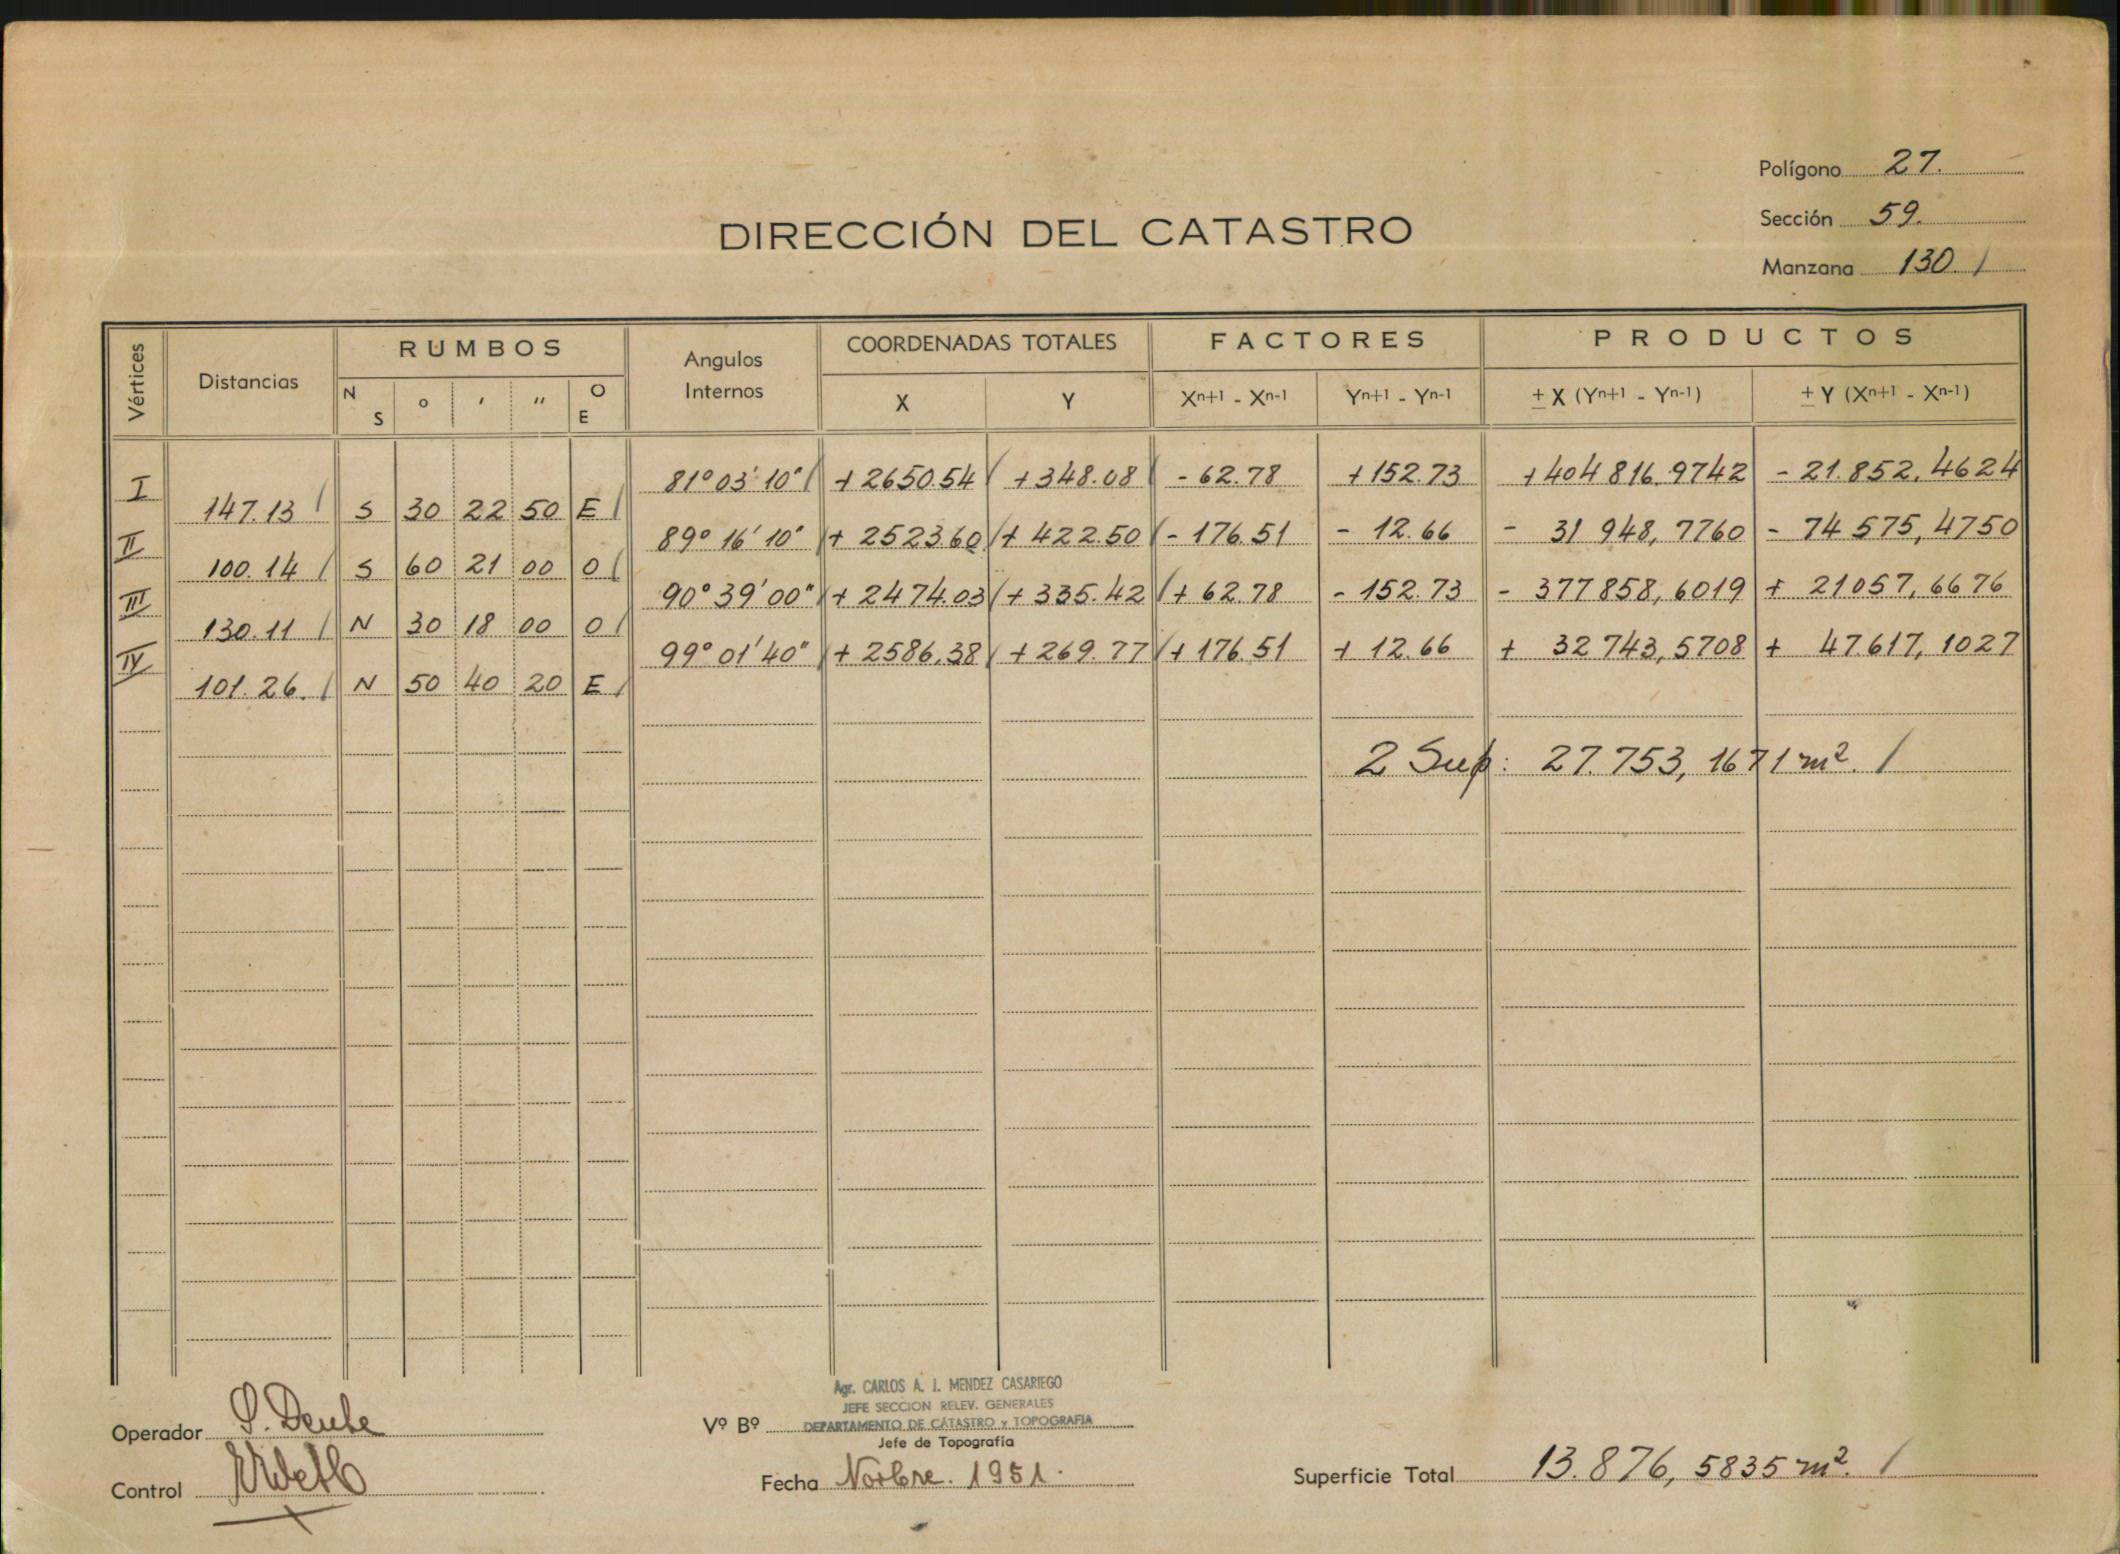 Polígono 27.
DIRECCIÓN DEL CATASTRO
Sección 59.
Manzana 130. /
Vértices Distancias RUMBOS N S ° ' " O E Angulos Internos COORDENADAS TOTALES X Y FACTORES Xn+1 - Xn-1 Yn+1 - Yn-1 PRODUCTOS ± X (Yn+1 - Yn-1) ± Y (Xn+1 - Xn-1)
I 81° 03' 10" / + 2650.54 / + 348.08 / - 62.78 + 152.73 + 404 816.9742 - 21.852,4624
147.13 / S 30 22 50 E /
II 89° 16' 10" / + 2523.60 / + 422.50 / - 176.51 - 12.66 - 31 948,7760 - 74 575,4750
100.14 / S 60 21 00 O /
III 90° 39' 00" / + 2474.03 / + 335.42 / + 62.78 - 152.73 - 377 858,6019 + 21057,6676
130.11 / N 30 18 00 O /
IV 99° 01' 40" / + 2586.38 / + 269.77 / + 176.51 + 12.66 + 32 743,5708 + 47.617,1027
101.26. / N 50 40 20 E /
2 Sup: 27.753,1671 m². /
Agr. CARLOS A. J. MENDEZ CASARIEGO
JEFE SECCION RELEV. GENERALES
Operador Vº Bº DEPARTAMENTO DE CATASTRO y TOPOGRAFIA
Jefe de Topografía
Control Fecha Norbre. 1951. Superficie Total 13.876,5835 m². /